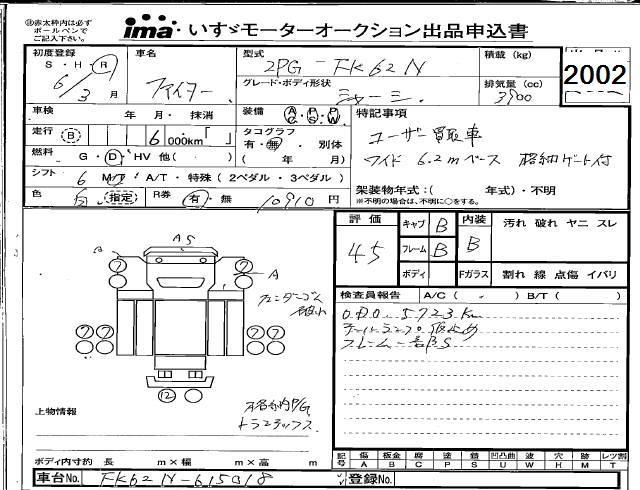 ㊟赤太枠内は必ず
ボールペンで
ご記入下さい。
ima いすゞモーターオークション出品申込書
初度登録
S・H・R
6/3月
車名
ファイター
型式
2PG-FK62N
グレード・ボディ形状
シャーシ
積載(kg)
排気量(cc)
2002
車検 年 月・抹消
装備
A・P・A
C・S・B
P・W
特記事項
ユーザー買取車
ワイド 6.2mベース 格納ゲート付
走行 B 6 000km「 」
タコグラフ
有・無・別体
( 年 月)
燃料 G・D・HV 他( )
シフト 6 M/T・A/T・特殊(2ペダル・3ペダル)
架装物年式:( 年式)・不明
※不明の場合は、不明に○をする。
色 指定
R券 有・無 10910円
評価
4.5
キャブ B
フレーム B
ボディ
内装
B
Fガラス
汚れ 破れ ヤニ スレ
割れ 線 点傷 イバリ
検査員報告 A/C( ) B/T( )
O.D.O. 5723Km
フレーム一部S
AS
A
A
フェンダーゴム
⑫
上物情報
格納P/G
トランテックス
ボディ内寸約 長 m×幅 m×高 m
記号 傷A 板金B 腐C 塗P 錆S 凹凸曲U 波W 穴H 跡M レツ割T
車台No. FK62N-615018
登録No.